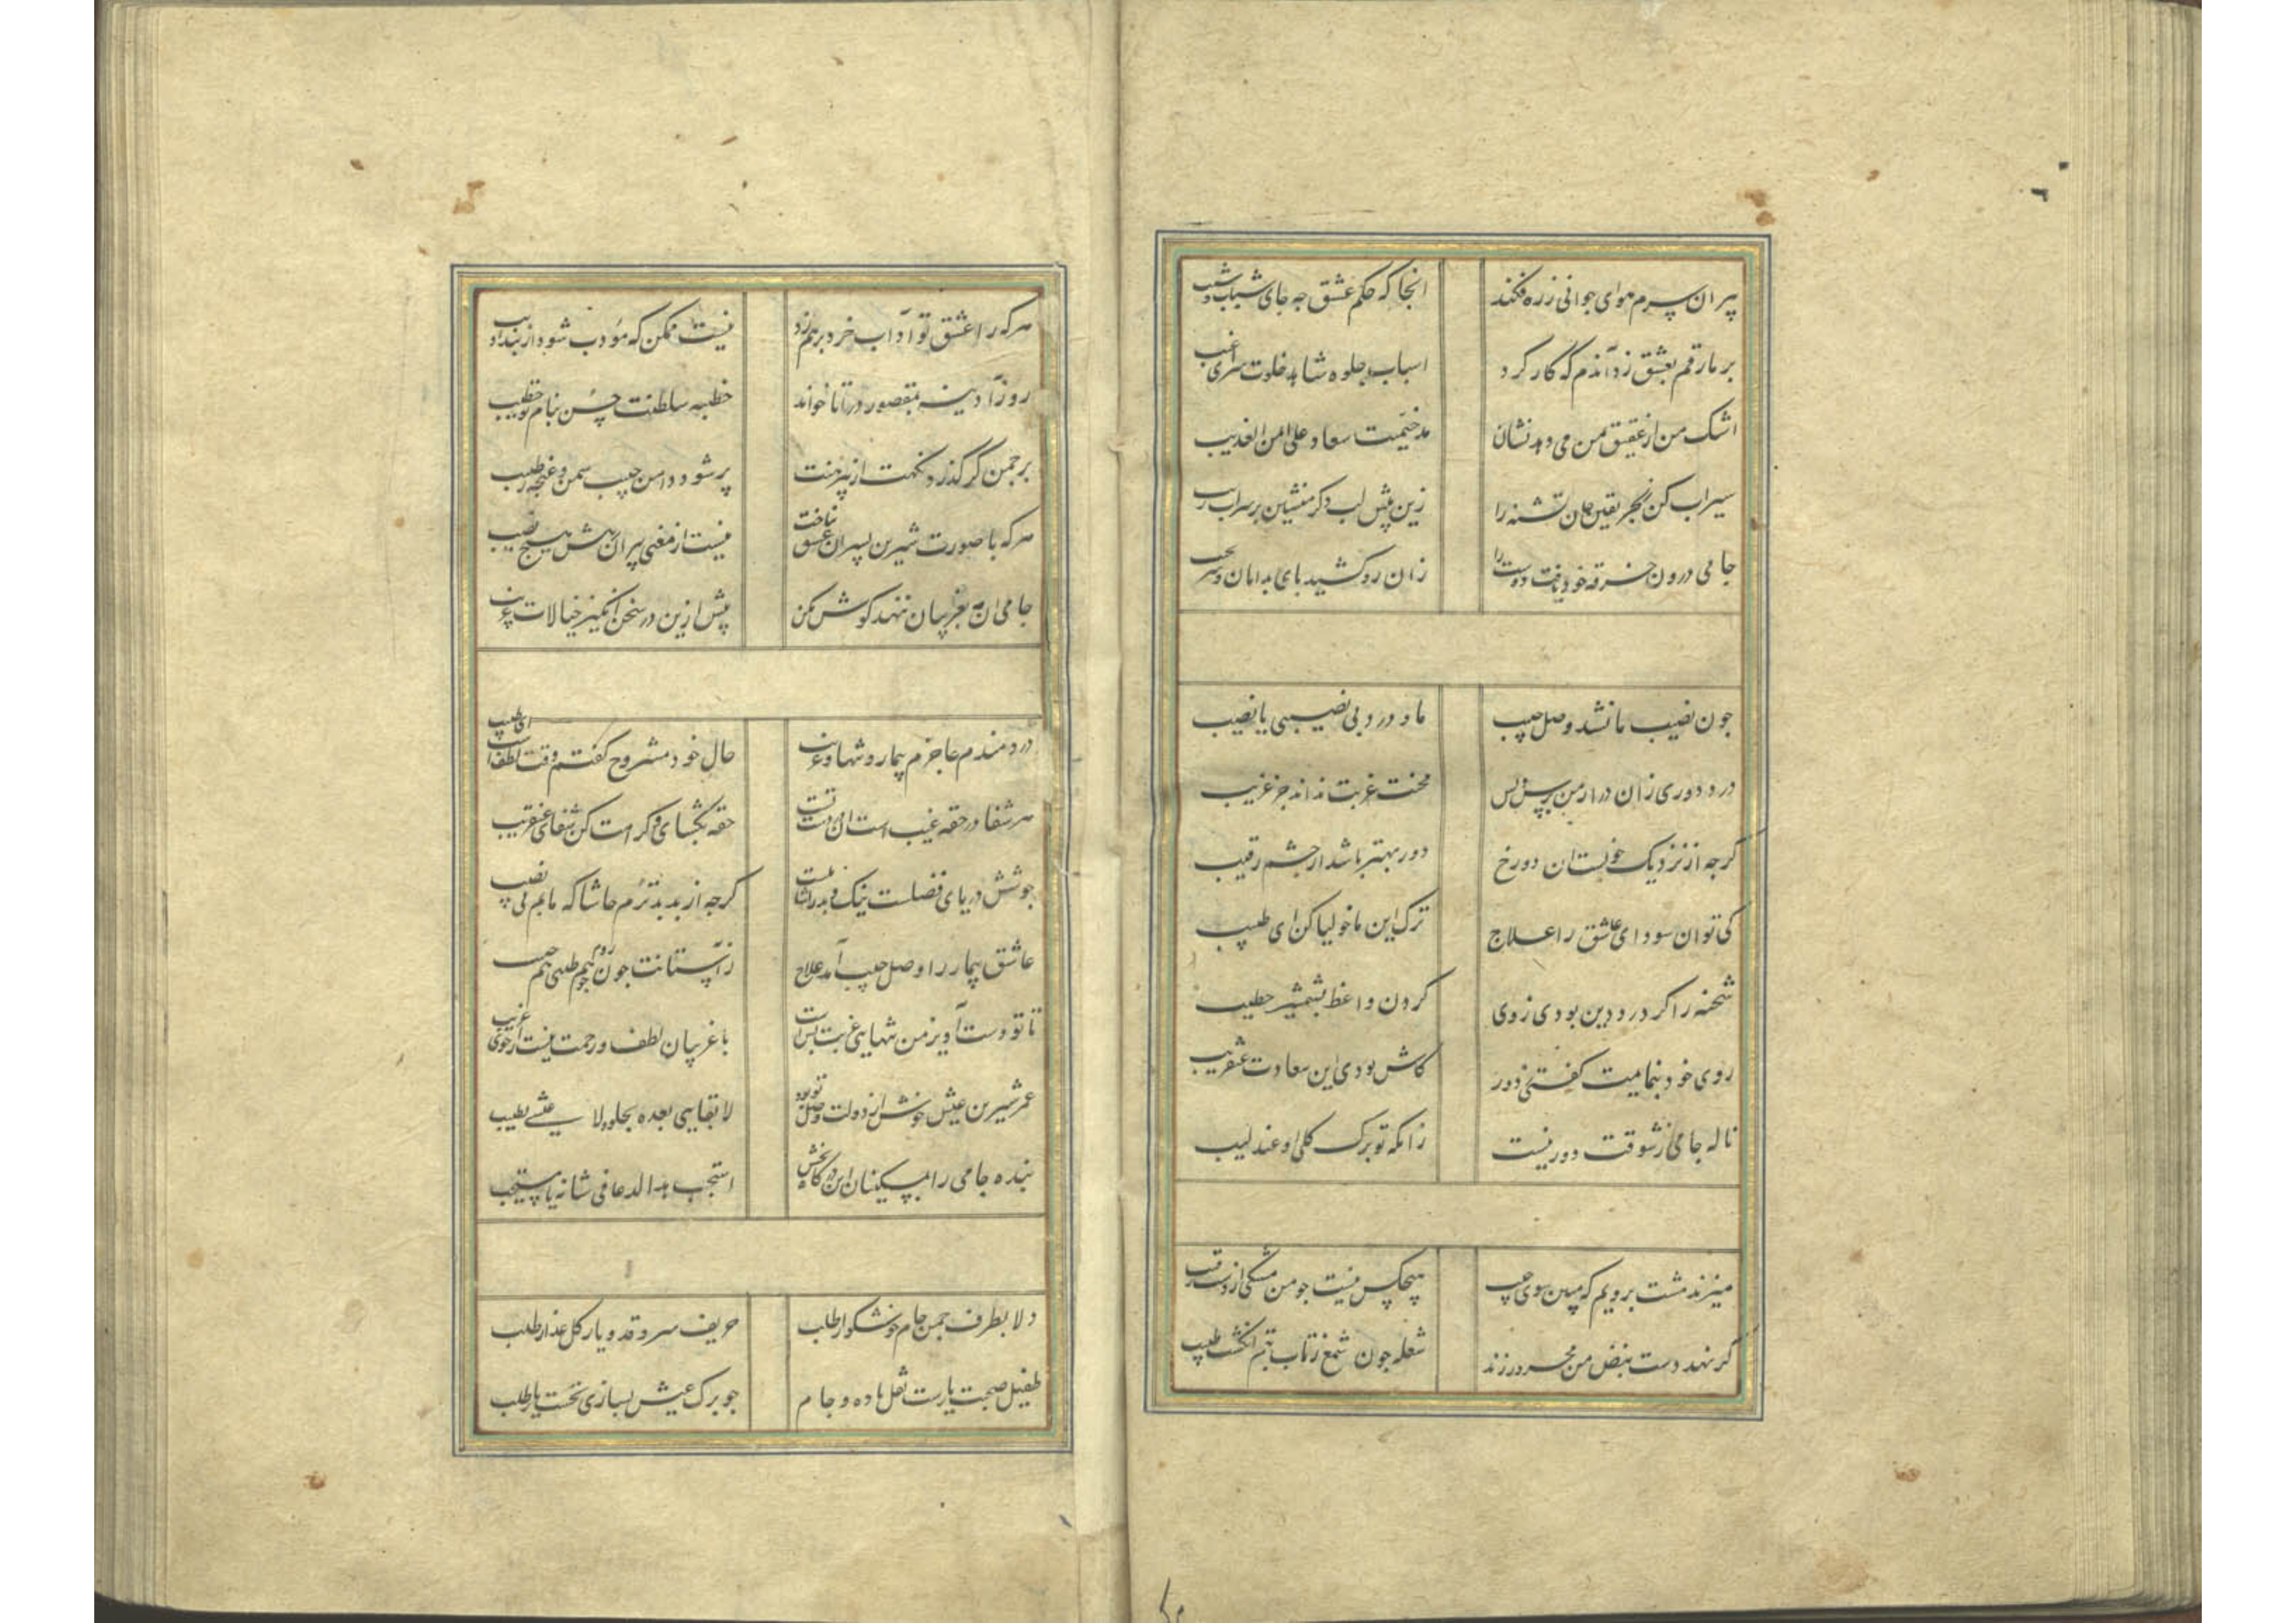 پیران سرم هوای جوانی ز ره فکند
انجا که حکم عشق چه جای شباب و شیب
بر ما رقم بعشق زد آندم که کار کرد
اسباب جلوه شاهد خلوت سرای غیب
اشک من از عقیق یمن می دهد نشان
مذ خیمت سعاد علی ایمن الغدیب
سیراب کن ز بحر یقین جان تشنه را
زین پیش لب دکر منشین بر سراب ریب
جامی درون خرقه خود یافت دوست را
زان رو کشید پای بدامان و سر بجیب
جون نصیب ما نشد وصل حبیب
ما و درد بی نصیبی یا نصیب
درد دوری زان در از من پرس و بس
محنت غربت نداند جز غریب
کرجه از نزدیک خویشتان دور خ
دور بهتر باشد از جشم رقیب
کی توان سودای عاشق را علاج
ترک این ماخولیا کن ای طبیب
شحنه را کر درد دین بودی زدی
کردن واعظ بشمشیر خطیب
روی خود بنمایمت کفتی ز دور
کاش بودی این سعادت عنقریب
ناله جامی ز شوقت دور نیست
زانکه تو برک کلی او عندلیب
میزند مشت برویم که مبین سوی حبیب
هیچکس نیست جو من مشکی از دست رقیب
کر نهد دست بنبض من محرور زند
شعله جون شمع ز تاب تبم انکشت طبیب
هرکه را عشق تو آداب خرد بر هم زد
نیست ممکن که مؤدب شود از پند ادیب
روز آدینه بمقصوره در آ تا خواند
خطبه سلطنت حسن بنام تو خطیب
بر جمن کر کذرد نکهت از پیرهنت
پر شود دامن جیب سمن و غنجه ز طیب
هرکه با صورت شیرین پسران عشق نباخت
نیست از معنی پیران رهش هیچ نصیب
جامی ان مه بغریبان ننهد کوش مکن
پیش ازین در سخن انکیز خیالات غریب
دردمندم عاجزم بیمار و تنها و غریب
حال خود مشروح کفتم وقت لطف است ای طبیب
هر شفا در حقه غیب است ان در دست تست
حقه بکشای و کرامت کن شفای عنقریب
جوشش دریای فضلت نیک و بد را شامل است
کرجه از بد بدترم حاشا که مانم بی نصیب
عاشق بیمار را وصل حبیب آمد علاج
ز آستانت جون روم هم طبیبی هم حبیب
تا تو دست آویز من تنهایی غربت بس است
با غریبان لطف و رحمت نیست از خوی غریب
عمر شیرین عیش خوش از دولت وصل تو بود
لا بقایی بعده یحلو ولا عیشی یطیب
بنده جامی را بمسکینان این درکاه بخش
استجب هذا الدعا فی شانه یا مستجیب
دلا بطرف جمن جام خوشکوار طلب
حریف سرو قد و یار کل عذار طلب
طفیل صحبت یارست نقل باده و جام
جو برک عیش بسازی نخست یار طلب